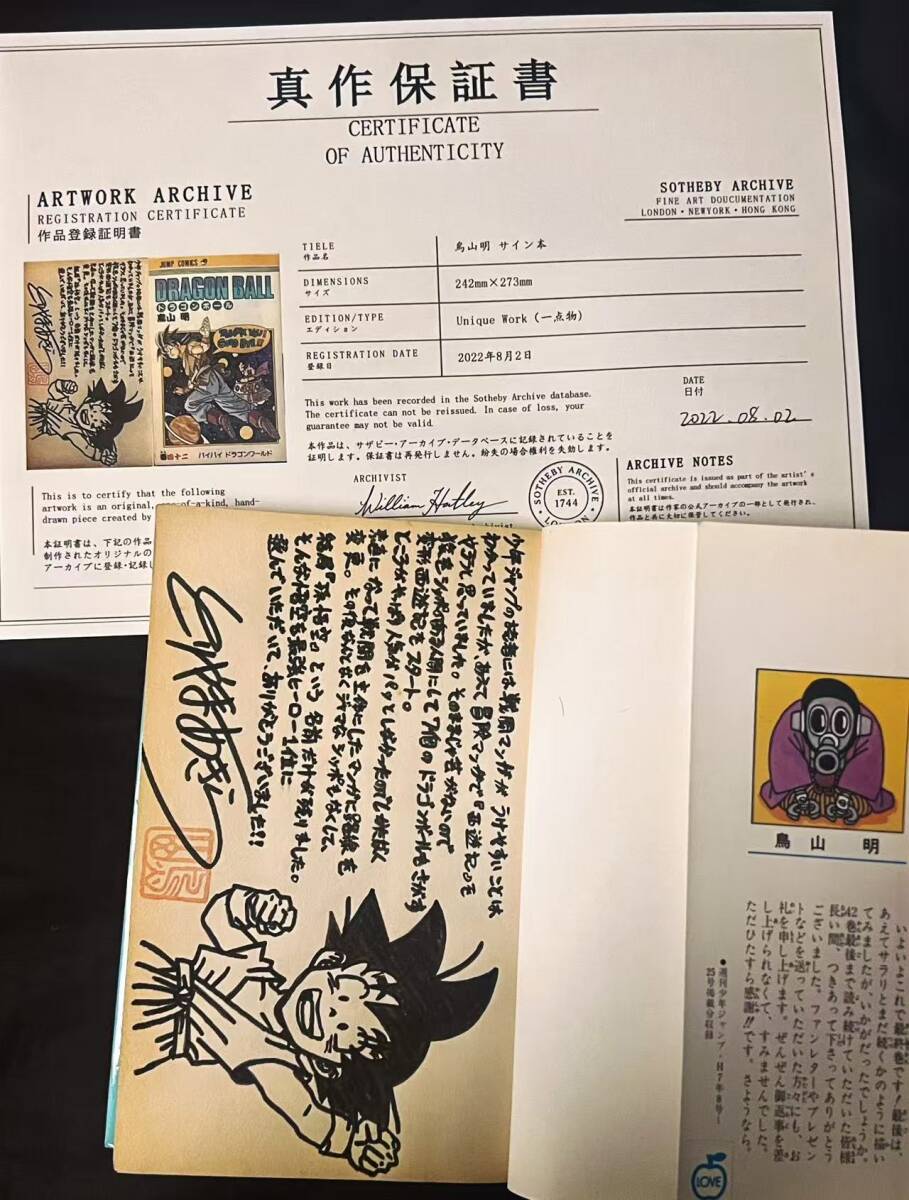 真作保証書
CERTIFICATE
OF AUTHENTICITY
ARTWORK ARCHIVE
REGISTRATION CERTIFICATE
作品登録証明書
SOTHEBY ARCHIVE
FINE ART DOUCUMENTATION
LONDON・NEWYORK・HONG KONG
TIELE
作品名
鳥山明 サイン本
DIMENSIONS
サイズ
242mm×273mm
EDITION/TYPE
エディション
Unique Work (一点物)
REGISTRATION DATE
登録日
2022年8月2日
JUMP COMICS
DRAGON BALL
ドラゴンボール
鳥山 明
巻四十二
バイバイ ドラゴンワールド
This work has been recorded in the Sotheby Archive database.
The certificate can not be reissued. In case of loss, your
guarantee may not be valid.
本作品は、サザビー・アーカイブ・データベースに記録されていることを
証明します。保証書は再発行しません。紛失の場合権利を失効します。
DATE
日付
2022.08.02
ARCHIVIST
William Hatley
SOTHEBY ARCHIVE
EST.
1744
ARCHIVE NOTES
This certificate is issued as part of the artist's
official archive and should accompany the artwork
at all times.
本証明書は作家の公式アーカイブの一部として発行され、
作品と共に大切に保管してください。
This is to certify that the following
artwork is an original, one-of-a-kind, hand-
drawn piece created by
本証明書は、下記の作品
制作されたオリジナルの
アーカイブに登録・記録し
少年ジャンプの読者には戦闘マンガがうけやすいことは
わかっていましたが、あえて冒険マンガで「西遊記」を
やろうと思っていました。そのままじゃ芸がないので
猿をシッポのある人間にして7個のドラゴンボールをさがす
変形西遊記をスタート。
ところがやっぱり人気がパッとしなかったので
戦闘を主体にしたマンガに路線を
変更。その後
結局「孫悟空」という名前だけが残りました。
そんな悟空を最強ヒーロー1位に
選んでいただいて、ありがとうございました!!
鳥山 明
いよいよこれで最終巻です!最後は、
あえてサラリとまだ続くかのように描い
てみましたが、いかがだったでしょうか。
42巻最後まで読み続けていただいた皆様
長い間、つきあって下さってありがとう
ございました。ファンレターやプレゼン
トなどを送っていただいた方々にも、お
礼を申し上げます。ぜんぜん御返事を差
し上げられなくて、すみませんでした。
ただひたすら感謝!!です。さようなら。
●週刊少年ジャンプ・H7年8号〜
25号掲載分収録
LOVE